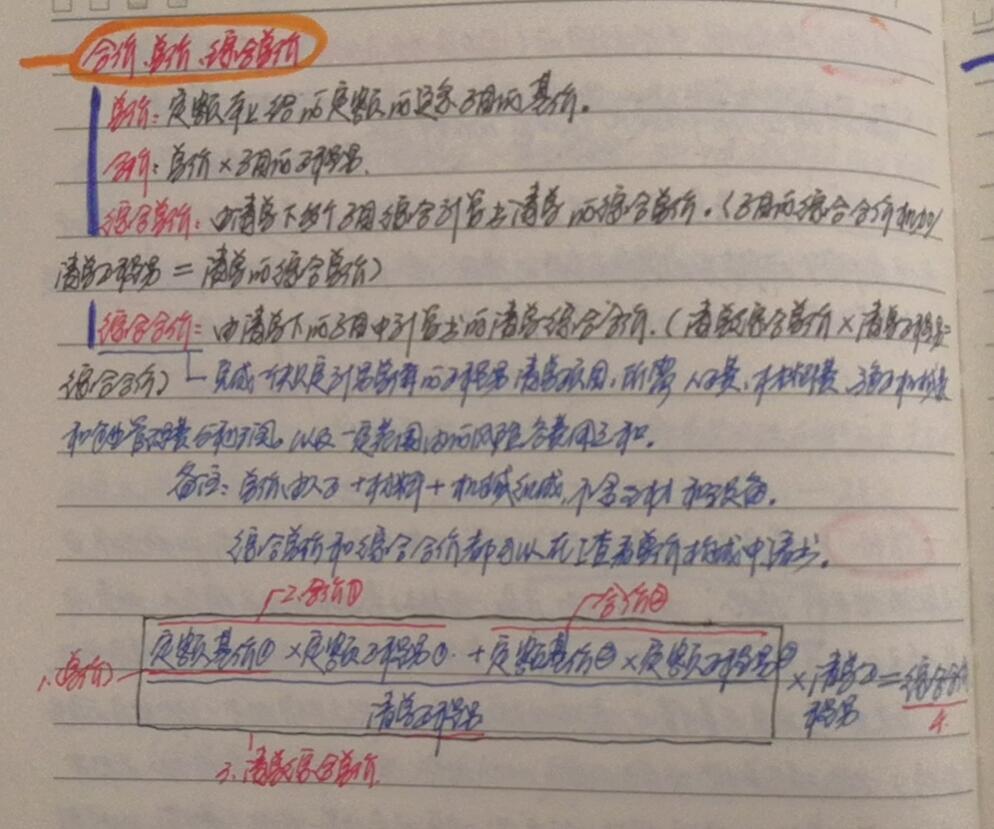 合价、单价、综合单价
单价：定额本上给的定额的这条子目的基价。
合价：单价×子目的工程量.
综合单价：由清单下的各个子目综合计算出清单的综合单价。（子目的综合合价相加/
清单工程量 = 清单的综合单价）
综合合价：由清单下的子目中计算出的清单综合合价.（清单综合单价×清单工程量=
综合合价） 完成一个规定计量单位的工程量清单项目，所需人工费、材料费、施工机械费
和企业管理费与利润，以及一定范围内的风险含费用之和。
备注：单价由人工+材料+机械组成，不含主材和设备。
综合单价和综合合价都可以在工查看单价构成中读出。
2.合价① 合价②
1.(单价) 定额基价①×定额工程量①+定额基价②×定额工程量② ×清单工程量=综合合价
清单工程量 4.
3.清单综合单价